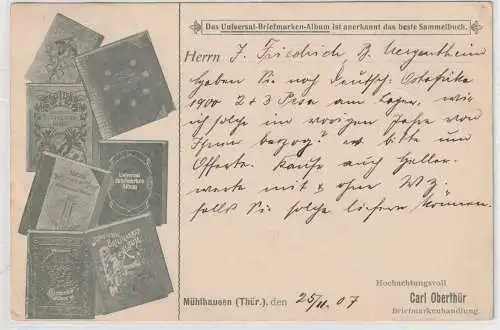 Das Universal-Briefmarken-Album ist anerkannt das beste Sammelbuch.
Herrn J. Friedrich B. Mergentheim
Haben Sie noch Deutsch: Ostafrika
1900 2 + 3 Pesa am Lager, wie
ich solche im vorigen Jahre von
Ihnen bezog? bitte um
Offerte. Kaufe auch Heller-
werte mit & ohne WZ.
falls Sie solche liefern können.
Universal
Briefmarken
Album
Hochachtungsvoll
Mühlhausen (Thür.), den 25/11. 07 Carl Oberthür
Briefmarkenhandlung.